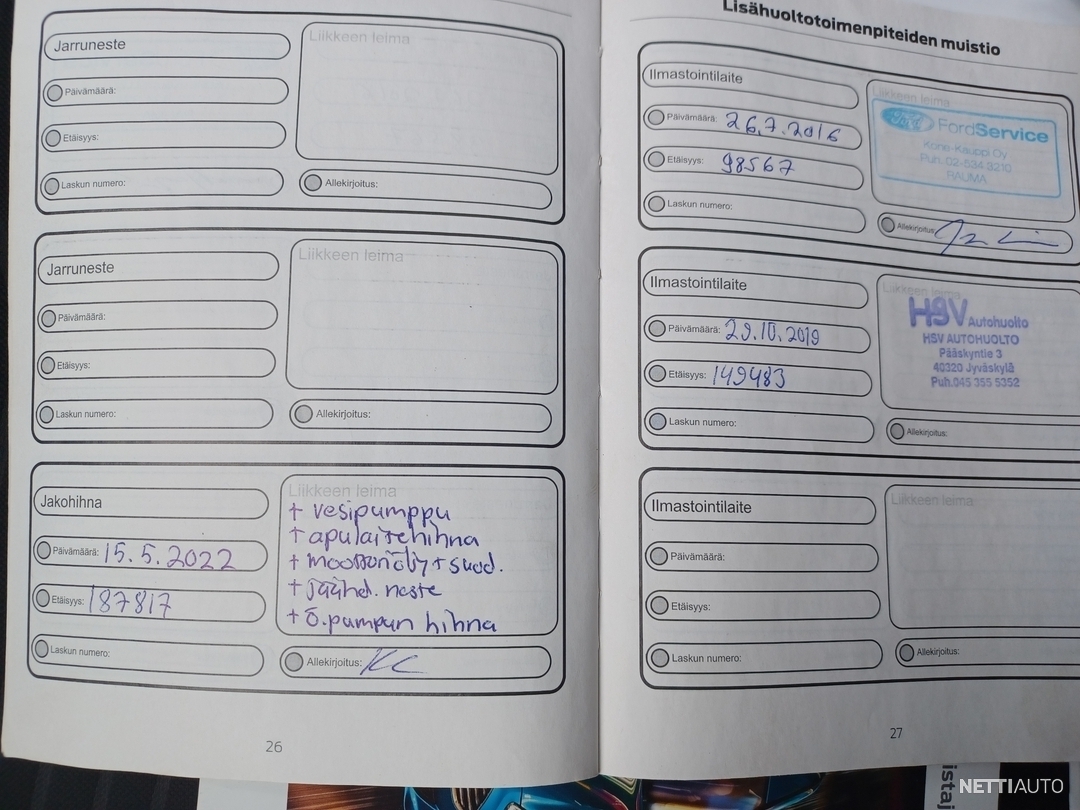 Jarruneste
Liikkeen leima
Päivämäärä:
Etäisyys:
Laskun numero:
Allekirjoitus:
Jarruneste
Liikkeen leima
Päivämäärä:
Etäisyys:
Laskun numero:
Allekirjoitus:
Jakohihna
Liikkeen leima
Päivämäärä: 15.5.2022
Etäisyys: 187817
Laskun numero:
+ vesipumppu
+ apulaitehihna
+ moottoriöljy + suod.
+ jäähd. neste
+ ö.pumpun hihna
Allekirjoitus:
26
Lisähuoltotoimenpiteiden muistio
Ilmastointilaite
Liikkeen leima
Päivämäärä: 26.7.2016
Etäisyys: 98567
Laskun numero:
Ford
FordService
Kone-Kauppi Oy
Puh. 02-534 3210
RAUMA
Allekirjoitus:
Ilmastointilaite
Liikkeen leima
Päivämäärä: 29.10.2019
Etäisyys: 149483
Laskun numero:
HSV Autohuolto
HSV AUTOHUOLTO
Pääskyntie 3
40320 Jyväskylä
Puh.045 355 5352
Allekirjoitus:
Ilmastointilaite
Liikkeen leima
Päivämäärä:
Etäisyys:
Laskun numero:
Allekirjoitus:
27
istaj
NETTIAUTO